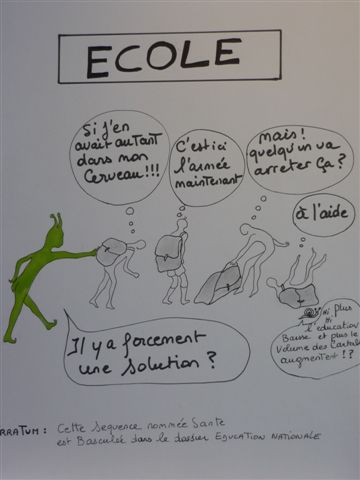 ECOLE
Si j'en
avait autant
dans mon
Cerveau!!!
C'est ici
l'armée
maintenant
Mais!
quelqu'un va
arreter ça?
à l'aide
plus
l'éducation
Baisse et plus le
Volume des Cartabl
augmentent!?
Il y a forcement
une solution?
RRATUM: Cette sequence nommée Santé
est Basculée dans le dossier EDUCATION NATIONALE